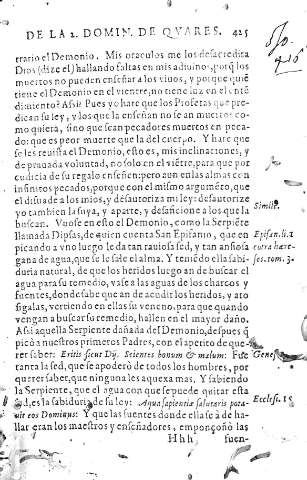 DE LA 2. DOMIN. DE QVARES. 425
trario el Demonio. Mis oraculos me los desacredita
Dios (dize el) hallando faltas en mis adiuinos, porq̃ los
muertos no pueden enseñar a los viuos, y porque quẽ
tiene el Demonio en el vientre, no tiene luz en el entẽ
dimiento? Assi? Pues yo harè que los Profetas que pre-
dican su ley, y los que la enseñan no sean muertos co-
mo quiera, sino que sean pecadores muertos en peca-
do: que es peor muerte que la del cuerpo. Y harè que
se les reuista el Demonio, esto es, mis inclinaciones, y
deprauada voluntad, no solo en el viẽtre, para que por
cudicia de su regalo enseñen: pero aun en las almas con
infinitos pecados, porque con el mismo argumẽto, que
el disuade a los mios, y desautoriza mi ley: desautorize
yo tambien la suya, y aparte, y desaficione a los que la
buscan. Vuose en esto el Demonio, como la Serpiẽte
llamada Dipsas, de quien cuenta San Epifanio, que en
picando a vno luego le da tan rauiosa sed, y tan ansiosa
gana de agua, que se le sale el alma. Y teniẽdo ella sabi-
duria natural, de que los heridos luego an de buscar el
agua para su remedio, vase a las aguas de los charcos y
fuentes, donde sabe que an de acudir los heridos, y ato
sigalas, vertiendo en ellas su veneno, para que quando
vengan a buscar su remedio, hallen en el mayor daño.
Assi aquella Serpiente dañada del Demonio, despues q̃
picò a nuestros primeros Padres, con el apetito de que-
rer saber: Eritis sicut Dij. Scientes bonum & malum: Fue
tanta la sed, que se apoderò de todos los hombres, por
querer saber, que ninguna les aquexa mas. Y sabiendo
la Serpiente, que el agua con que se puede quitar esta
sed, es la sabiduria de su ley: Aqua sapientiæ salutaris pota-
uit eos Dominus: Y que las fuentes donde ella se à de ha-
llar eran los maestros y enseñadores, emponçoñò las
Hhh fuen-
Simile.
Epifan. li. 2
cura hære-
ses. tom. 3.
Genes.
Ecclesi. 15